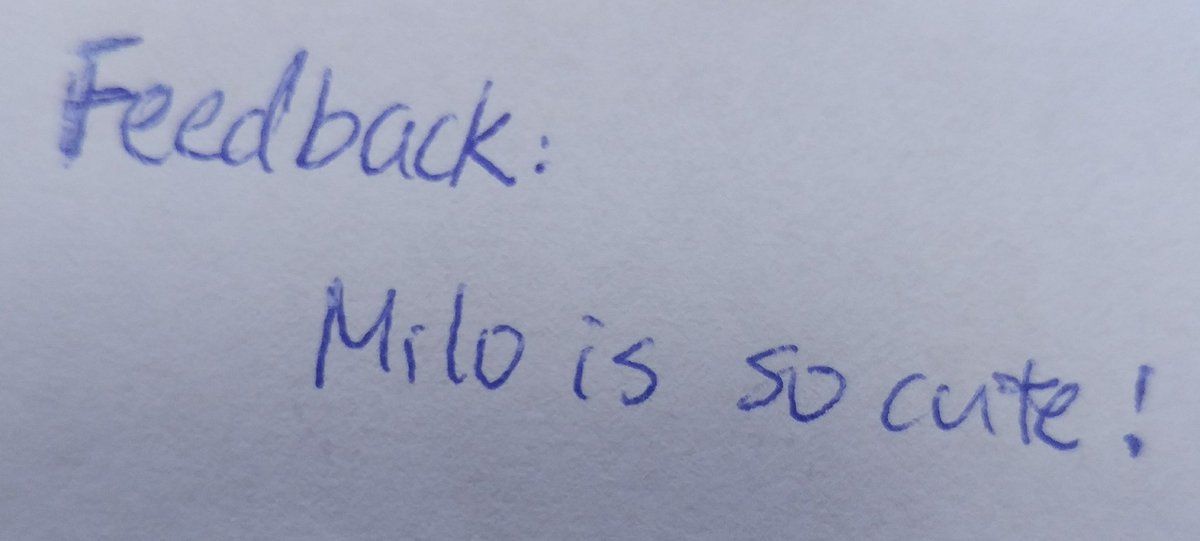 Feedback:
Milo is so cute!